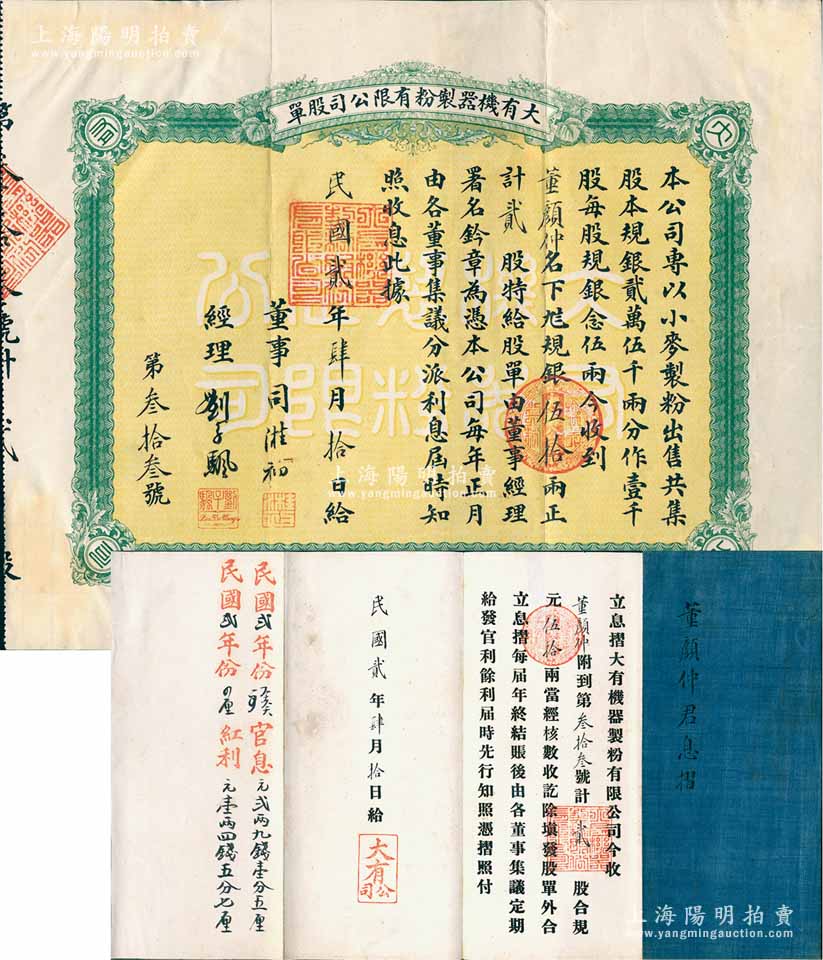 上海陽明拍賣
www.yangmingauction.com
大有機器製粉有限公司股單
大
有
公
本公司專以小麥製粉出售共集
股本規銀貳萬伍千兩分作壹千
股每股規銀念伍兩今收到
董顏仲名下規銀伍拾兩正
計貳股特給股單由董事經理
署名鈐章為憑本公司每年正月
由各董事集議分派利息屆時知
照收息此據
民國貳年肆月拾日給
董事
經理 劉子颿
第叁拾叁號
大機器製粉有限公司
上海陽明拍賣
www.yangmingauction.com
董顏仲君息摺
立息摺大有機器製粉有限公司今收
董顏仲附到第叁拾叁號計貳股合規
元伍拾兩當經核數收訖除填發股單外合
立息摺每屆年終結賬後由各董事集議定期
給發官利餘利屆時先行知照憑摺照付
民國貳年肆月拾日給
大有公司
民國弍年份官息元弍兩九錢壹分五厘
民國弍年份紅利元壹兩四錢五分七厘
上海陽明拍賣
www.yangmingauction.com